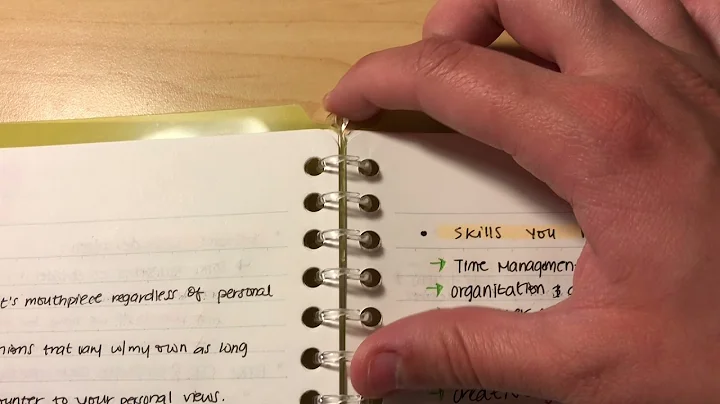 t's mouthpiece regardless of personal
nions that vary w/my own as long
unter to your personal views.
• skills you
→ Time Managemen
→ organization &
→ creati